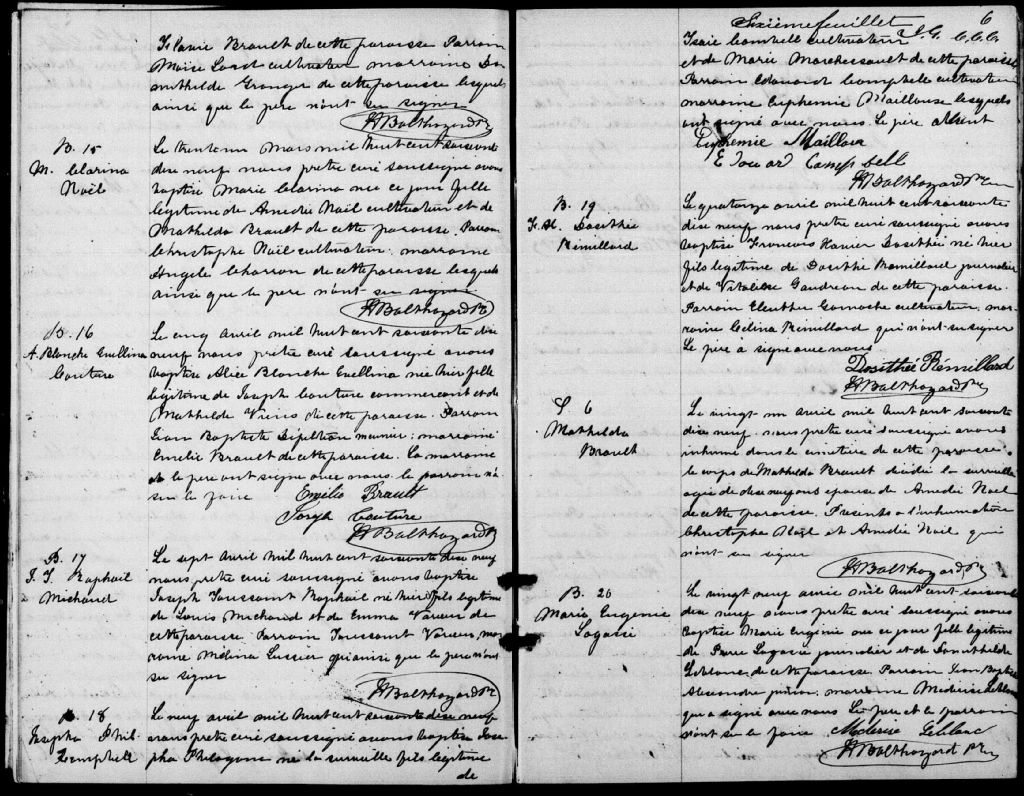 Brault de cette paroisse Parrain
Moïse cultivateur marraine Do
mithilde Granger de cette paroisse lesquels
ainsi que le père n'ont su signer
JABalthazard Ptr
B. 15
M. Clarina
Noël
Le trente un Mars mil huit cent soixante
dix neuf nous prêtre curé soussigné avons
baptisé Marie Clarina née ce jour fille
légitime de Amédée Noël cultivateur et de
Mathilda Brault de cette paroisse. Parrain
Christophe Noël cultivateur, marraine
Angèle Charron de cette paroisse lesquels
ainsi que le père n'ont su signer
JABalthazard Ptr
B. 16
A. Blanche Euellina
Couture
Le cinq avril mil huit cent soixante dix
neuf nous prêtre curé soussigné avons
baptisé Alice Blanche Euellina née hier fille
légitime de Joseph Couture commerçant et de
Mathilde de cette paroisse. Parrain
Jean Baptiste meunier; marraine
Emélie Brault de cette paroisse. La marraine
et le père ont signé avec nous le parrain n'a
su le faire Emélie Brault
Joseph Couture
JABalthazard Ptr
B. 17
J. T. Raphaël
Michaud
Le sept avril mil huit cent soixante dix neuf
nous prêtre curé soussigné avons baptisé
Joseph Toussaint Raphaël né hier fils légitime
de Louis Michaud et de Emma de
cette paroisse. Parrain Toussaint mar
raine Mélina Lussier qui ainsi que le père n'ont
su signer
JABalthazard Ptr
B. 18
Joseph Phil.
Campbell
Le neuf avril mil huit cent soixante dix neuf
nous prêtre curé soussigné avons baptisé Jose
ph né la surveille fils légitime
de
Sixième feuillet 6
J.G. C.C.C.
Isaïe Campbell cultivateur
et de Marie Marchessault de cette paroisse
Parrain Edouard Campbell cultivateur
marraine Euphémie Mailloux lesquels
ont signé avec nous. Le père absent
Euphemie Mailloux
Edouard Campbell
JABalthazard Ptr
B. 19
F. X. Dosithée
Rémillard
Le quatorze avril mil huit cent soixante
dix neuf nous prêtre curé soussigné avons
baptisé François Xavier Dosithée né hier
fils légitime de Dosithé Rémillard journalier
et de Vitaline Gaudreau de cette paroisse.
Parrain Eleuther Gamache cultivateur, mar
raine Célina Rémillard qui n'ont su signer
Le père a signé avec nous
Dosithée Rémillard
JABalthazard Ptr
S. 6
Mathilda
Brault
Le vingt un avril mil huit cent soixante
dix neuf nous prêtre curé soussigné avons
inhumé dans le cimetière de cette paroisse
le corps de Mathilda Brault décédée la surveille
agée de dix neuf ans épouse de Amédé Noël
de cette paroisse. Présents à l'inhumation
Christophe Noël et Amédée Noël qui
n'ont su signer
JABalthazard Ptr
B. 20
Marie Eugénie
Lagassé
Le vingt neuf avril mil huit cent soixante
dix neuf nous prêtre curé soussigné avons
baptisé Marie Eugénie née ce jour fille légitime
de Pierre Lagassé journalier et de Domithilde
Leblanc de cette paroisse Parrain Jean Baptiste
Alexandre marraine Médérise Leblanc
qui a signé avec nous Le père et le parrain
n'ont su le faireMéderise Leblanc
JABalthazard Ptr